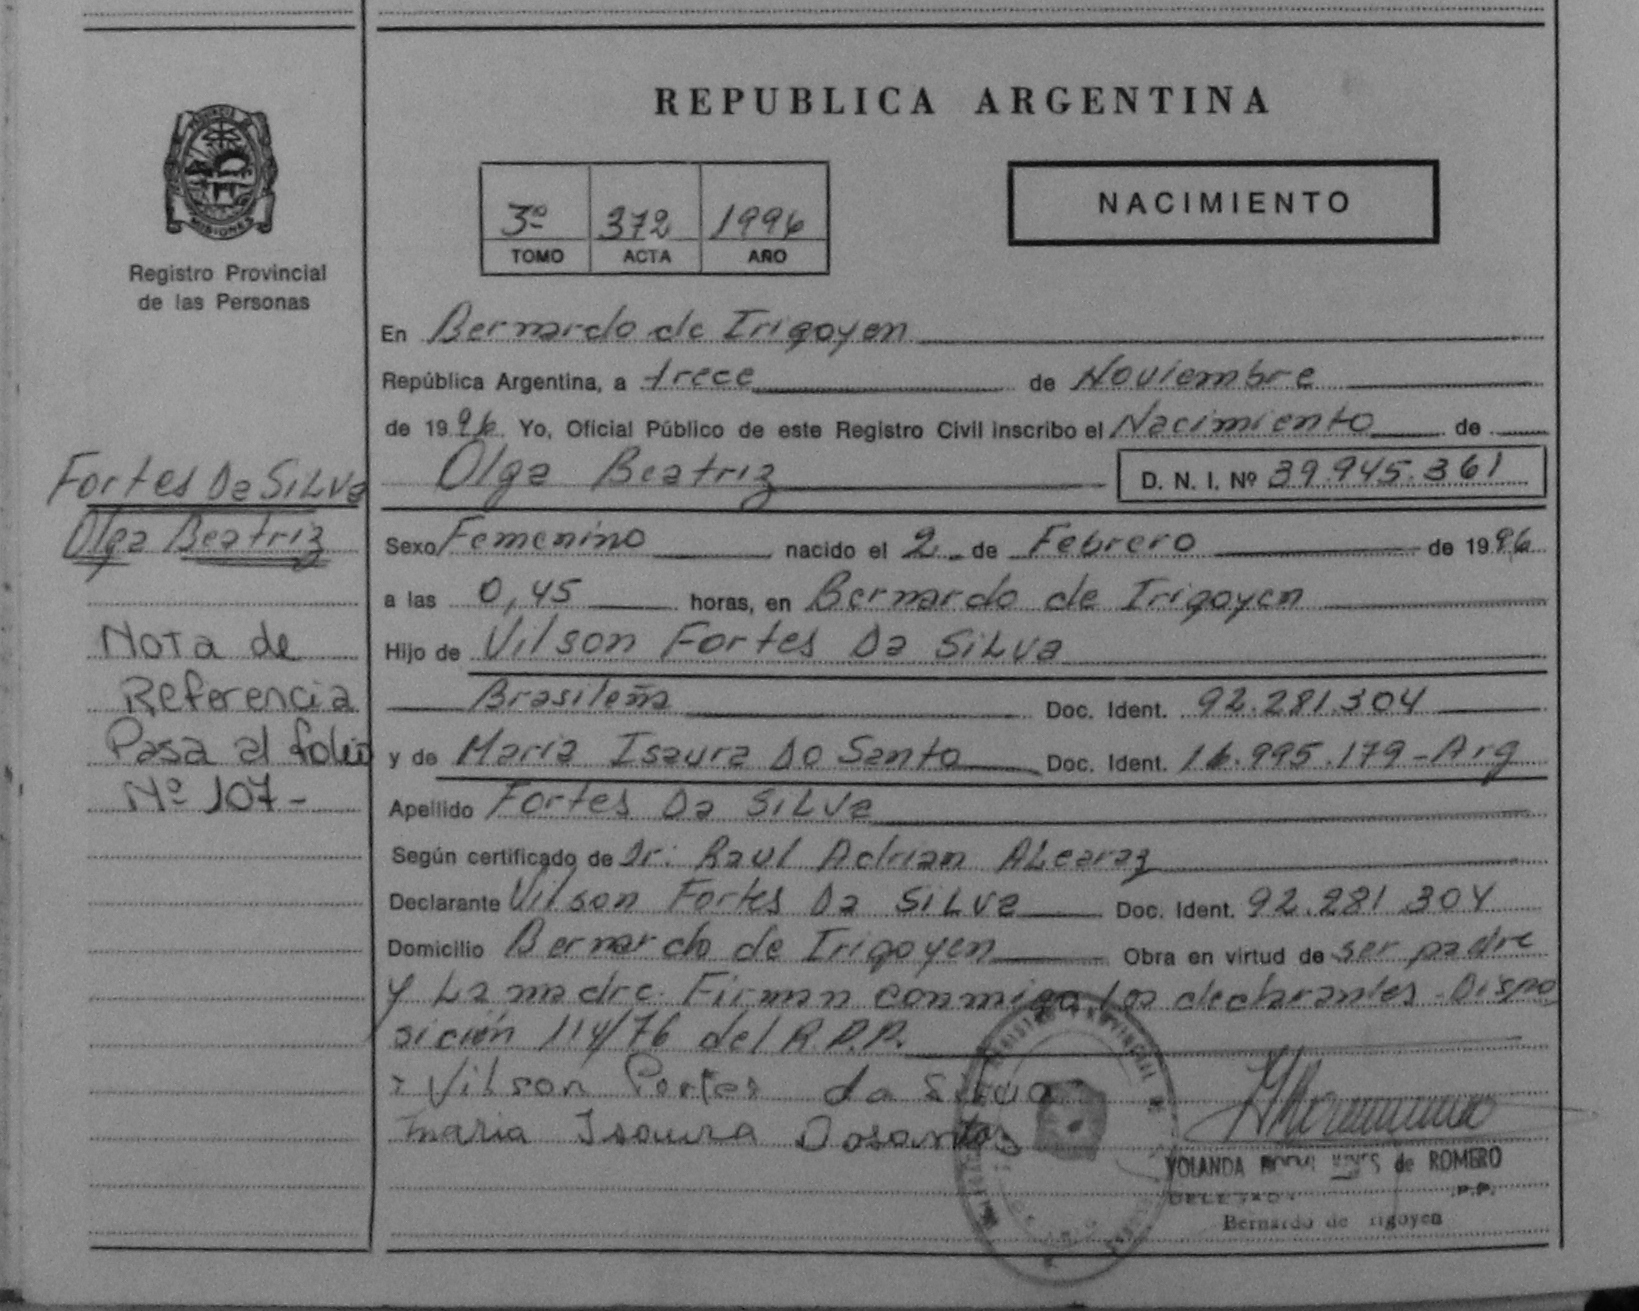 REPUBLICA ARGENTINA
MISIONES
Registro Provincial
de las Personas
3º 372 1996
TOMO ACTA AÑO
NACIMIENTO
En Bernardo de Irigoyen
República Argentina, a trece de Noviembre
de 1996 Yo, Oficial Público de este Registro Civil inscribo el Nacimiento de
Olga Beatriz D. N. I. Nº 39.945.361
Fortes Da SiLVa
Olga Beatriz
Sexo Femenino nacido el 2 de Febrero de 1996
a las 0,45 horas, en Bernardo de Irigoyen
Hijo de Vilson Fortes Da SiLVa
Brasileña Doc. Ident. 92.281.304
y de Maria Isaura Do Santo Doc. Ident. 16.995.179-Arg
Apellido Fortes Da SiLVa
Según certificado de Dr. Raul Adrian ALcaraz
Declarante Vilson Fortes Da SiLVa Doc. Ident. 92.281.304
Domicilio Bernardo de Irigoyen Obra en virtud de ser padre
y La madre. Firman conmigo los declarantes. Dispo
sición 114/76 del R.P.P.
Nota de
Referencia
Pasa al folio
Nº 107-
Vilson Fortes da Silva
maria Isaura Dosantos
YOLANDA de ROMERO
Bernardo de Irigoyen